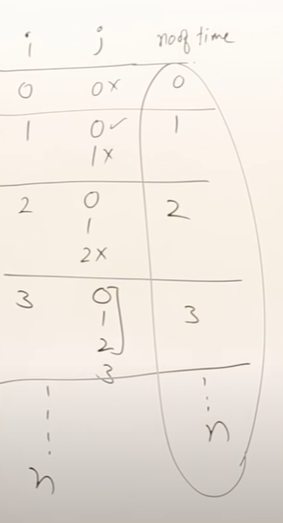 i j no of time
0 0x 0
1 0✓ 1
1x
2 0 2
1
2x
3 0 3
1
2
3
n n